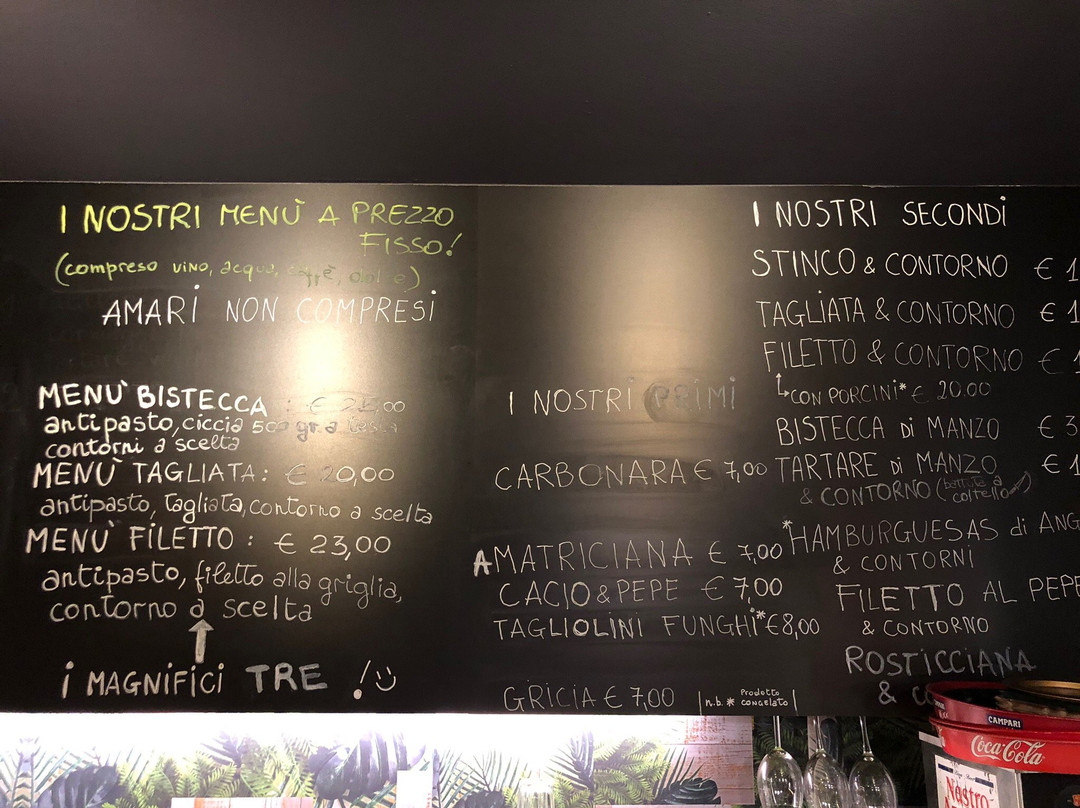 I NOSTRI MENÙ A PREZZO
FISSO!
(compreso vino, acqua, caffè, dolce)
AMARI NON COMPRESI
MENÙ BISTECCA : € 25,00
antipasto, ciccia 500 gr a testa
contorni a scelta
MENÙ TAGLIATA: € 20,00
antipasto, tagliata, contorno a scelta
MENÙ FILETTO : € 23,00
antipasto, filetto alla griglia,
contorno a scelta
i MAGNIFICI TRE !
I NOSTRI PRIMI
CARBONARA € 7,00
AMATRICIANA € 7,00
CACIO & PEPE € 7,00
TAGLIOLINI FUNGHI* € 8,00
GRICIA € 7,00
n.b. * Prodotto
congelato
I NOSTRI SECONDI
STINCO & CONTORNO € 1
TAGLIATA & CONTORNO € 1
FILETTO & CONTORNO € 1
CON PORCINI* € 20.00
BISTECCA di MANZO € 3
TARTARE di MANZO € 1
& CONTORNO (battuta a
coltello)
*HAMBURGUESAS di ANG
& CONTORNI
FILETTO AL PEPE
& CONTORNO
ROSTICCIANA
& CO
CAMPARI
Coca-Cola
Nostro